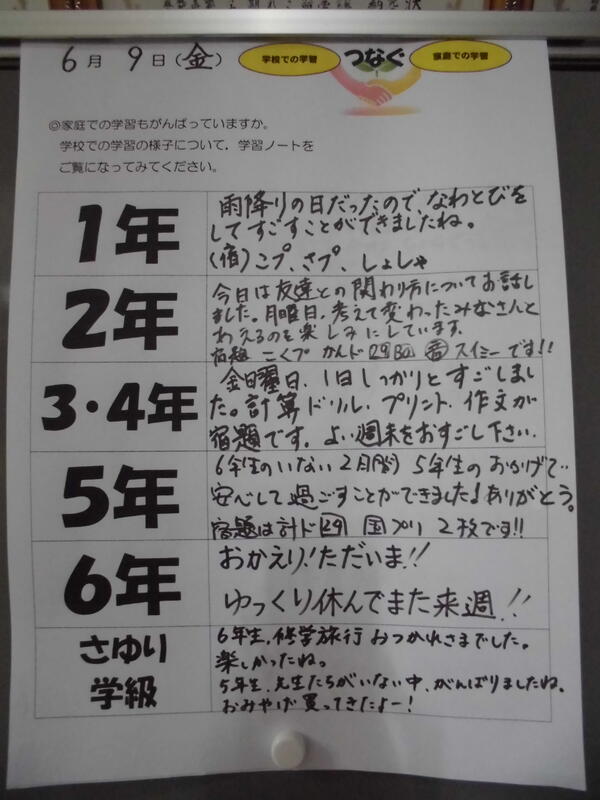 6月9日(金)
学校での学習 つなぐ 家庭での学習
◎家庭での学習もがんばっていますか。
学校での学習の様子について、学習ノートを
ご覧になってみてください。
1年
雨降りの日だったので、なわとびを
してすごすことができましたね。
(宿)こプ、さプ、しょしゃ
2年
今日は友達との関わり方についてお話し
ました。月曜日、考えて変わったみなさんと
わえるのを楽しみにしています。
宿題 こくプ かんド 29 30 音 スイミーです!!
3・4年
金曜日、1日しっかりとすごしまし
た。計算ドリル、プリント、作文が
宿題です。よい週末をおすごし下さい。
5年
6年生のいない2日間 5年生のおかげで
安心して過ごすことができました!ありがとう。
宿題は計ド29 国プリ 2枚です!!
6年
おかえり!ただいま!!
ゆっくり休んでまた来週!!
さゆり
学級
6年生、修学旅行おつかれさまでした。
楽しかったね。
5年生、先生たちがいない中、がんばりましたね。
おみやげ買ってきたよー!